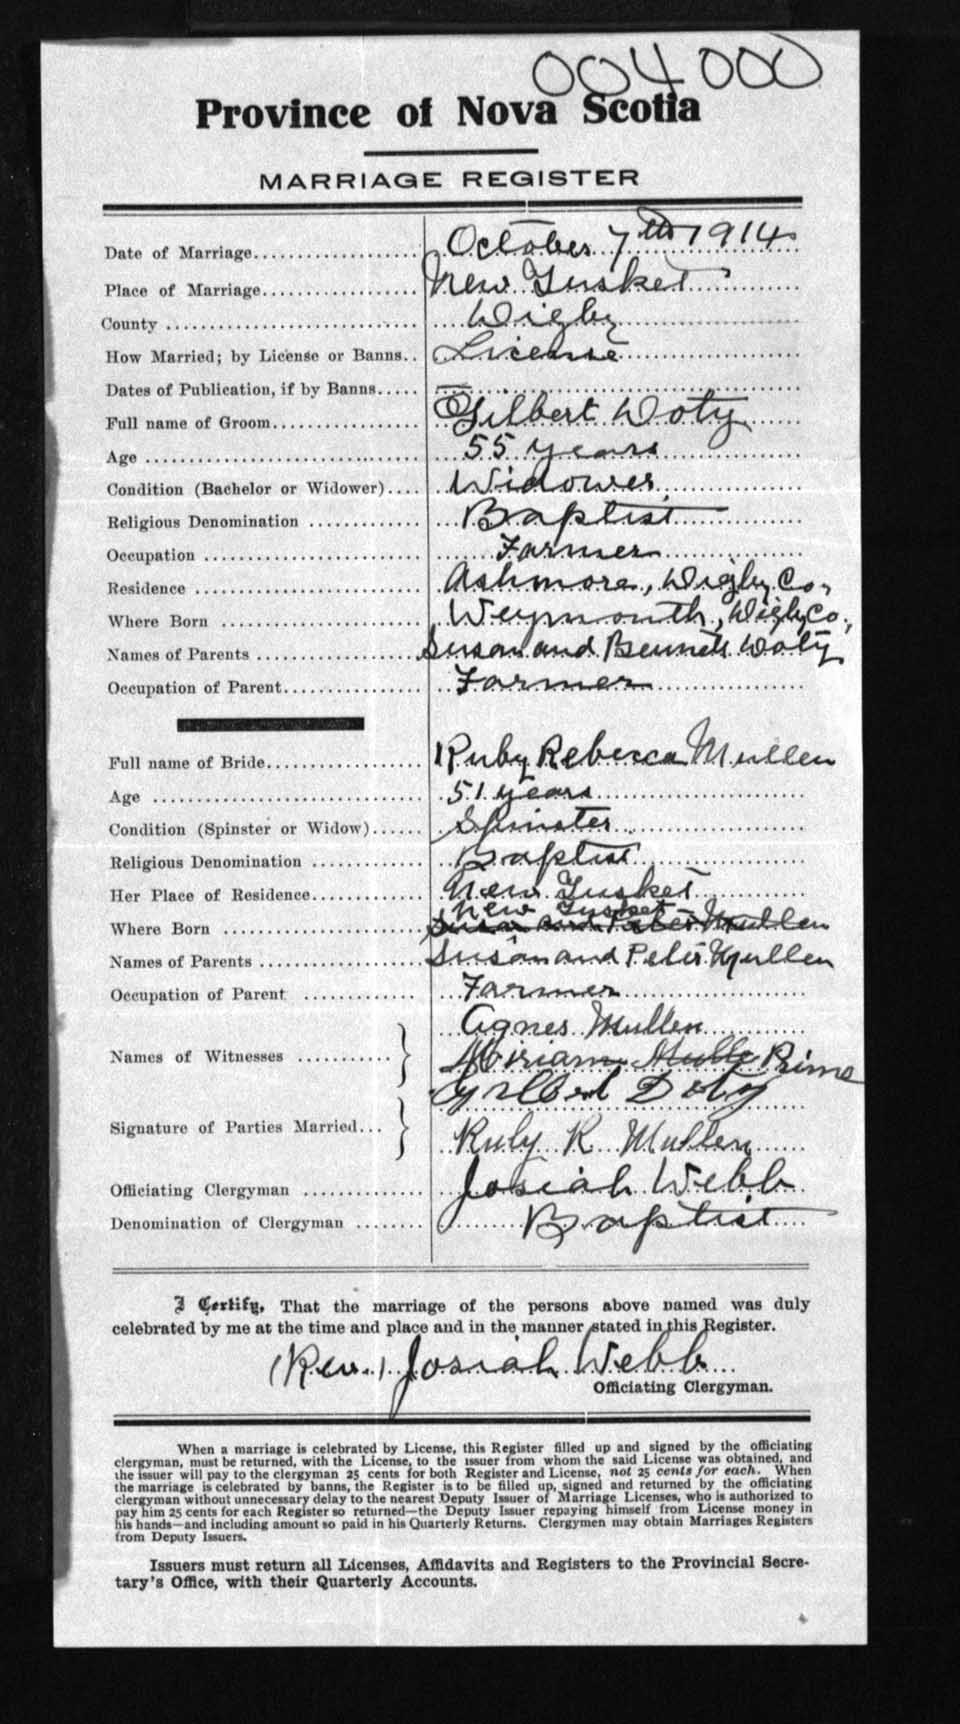 004000
Province of Nova Scotia
MARRIAGE REGISTER
Date of Marriage.................... October 7th 1914
Place of Marriage.................. New Tusket
County ............................ Digby
How Married; by License or Banns.. License
Dates of Publication, if by Banns.....
Full name of Groom.................. Gilbert Doty
Age ............................... 55 years
Condition (Bachelor or Widower).... Widower
Religious Denomination ............. Baptist
Occupation ........................ Farmer
Residence ......................... Ashmore, Digby Co,
Where Born ...................... Weymouth, Digby Co.,
Names of Parents ................. Susan and Bennett Doty
Occupation of Parent............... Farmer
Full name of Bride.................. Ruby Rebecca Mullen
Age .............................. 51 years
Condition (Spinster or Widow)...... Spinster
Religious Denomination ............ Baptist
Her Place of Residence............. New Tusket
New Tusket
Where Born ...................... Susan and Peter Mullen
Names of Parents ................. Susan and Peter Mullen
Occupation of Parent ............. Farmer
Agnes Mullen
Names of Witnesses ........... } Miriam Mulle Prime
Gilbert Doty
Signature of Parties Married... }
Ruby R Mullen
Officiating Clergyman ............. Josiah Webb
Denomination of Clergyman ........ Baptist
I Certify, That the marriage of the persons above named was duly
celebrated by me at the time and place and in the manner stated in this Register.
(Rev.) Josiah Webb
Officiating Clergyman.
When a marriage is celebrated by License, this Register filled up and signed by the officiating
clergyman, must be returned, with the License, to the issuer from whom the said License was obtained, and
the issuer will pay to the clergyman 25 cents for both Register and License, not 25 cents for each. When
the marriage is celebrated by banns, the Register is to be filled up, signed and returned by the officiating
clergyman without unnecessary delay to the nearest Deputy Issuer of Marriage Licenses, who is authorized to
pay him 25 cents for each Register so returned—the Deputy Issuer repaying himself from License money in
his hands—and including amount so paid in his Quarterly Returns. Clergymen may obtain Marriages Registers
from Deputy Issuers.
Issuers must return all Licenses, Affidavits and Registers to the Provincial Secre-
tary's Office, with their Quarterly Accounts.